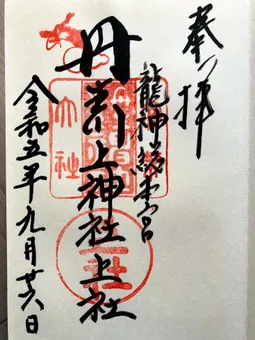 奉拝
龍神総本宮
丹生川上神社上社
大社
令和五年九月廿六日